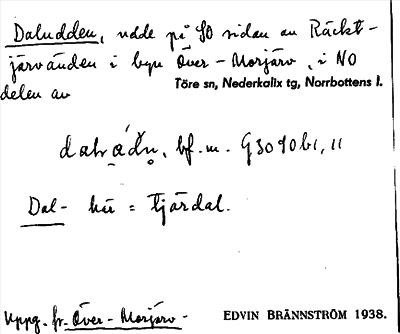 Daludden, udde på SO sidan av Räckt-
järvänden i byn Över-Morjärv, i NO
delen av Töre sn, Nederkalix tg, Norrbottens l.
bf. m. G3090b1, 11
Dal- här = tjärdal.
Uppg. fr. Över-Morjärv- EDVIN BRÄNNSTRÖM 1938.